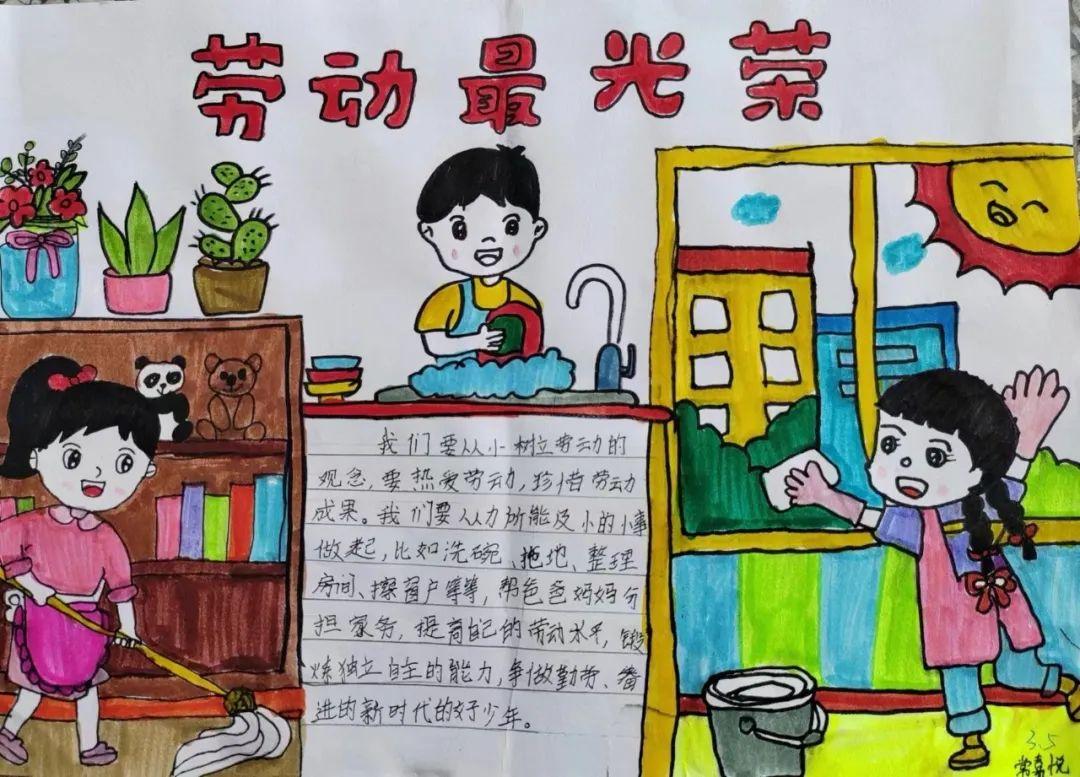 劳动最光荣
我们要从小树立劳动的
观念,要热爱劳动,珍惜劳动
成果。我们要从力所能及小的小事
做起,比如洗碗、拖地、整理
房间、擦窗户等等,帮爸爸妈妈分
担家务,提高自己的劳动水平,锻
炼独立自主的能力,争做勤劳、奋
进的新时代的好少年。
3.5
常嘉悦